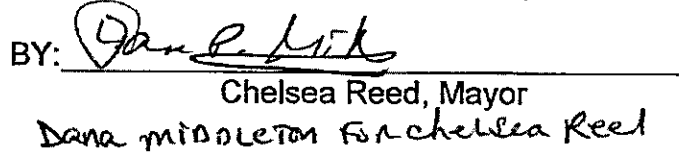 BY: Dana P. Midd
Chelsea Reed, Mayor
Dana MIDDLETON FOR chelsea Reed